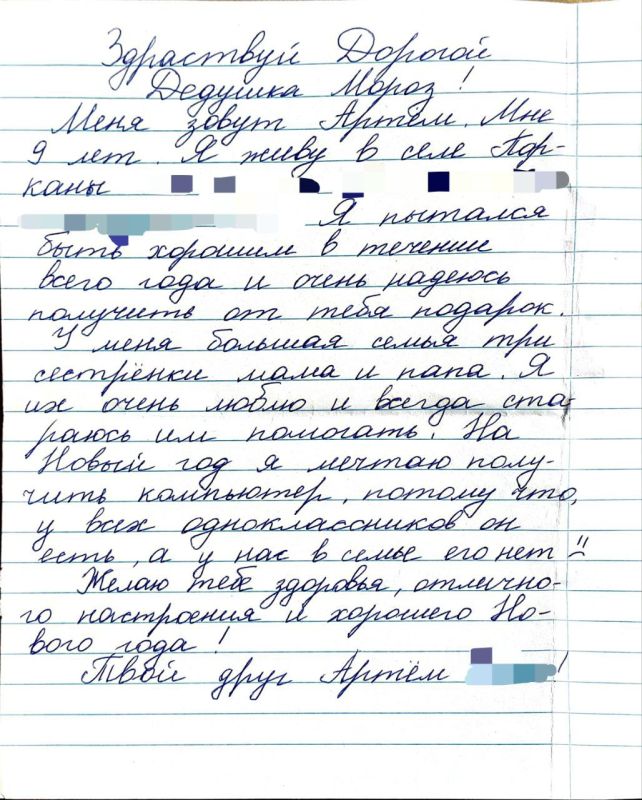 Здраствуй Дорогой
Дедушка Мороз!
Меня зовут Артём. Мне
9 лет. Я живу в селе Пар-
каны
Я пытался
быть хорошим в течении
всего года и очень надеюсь
получить от тебя подарок.
У меня большая семья три
сестрёнки мама и папа. Я
их очень люблю и всегда ста-
раюсь им помогать. На
Новый год я мечтаю полу-
чить компьютер, потому что,
у всех одноклассников он
есть, а у нас в семье его нет!!
Желаю тебе здоровья, отлично-
го настроения и хорошего Но-
вого года!
Твой друг Артём !